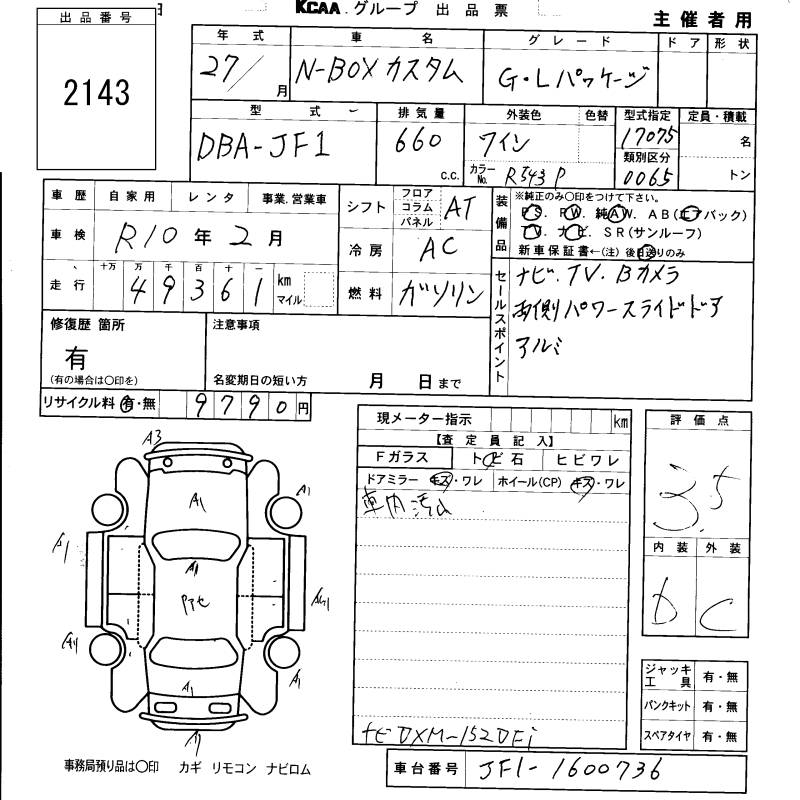 日
KCAA.グループ 出品票
主催者用
出品番号
2143
年式
車名
グレード
ドア
形状
27/ 月
N-BOXカスタム
G・Lパッケージ
型式
排気量
外装色
色替
型式指定
定員・積載
DBA-JF1
660 c.c.
ワイン
17075
名
カラーNo. R543P
類別区分
0065
トン
車歴
自家用
レンタ
事業.営業車
シフト
フロア
コラム
パネル
AT
装備品
※純正のみ○印をつけて下さい。
PS. PW. 純AW. AB(エアバック)
TV. ナビ. SR(サンルーフ)
新車保証書←(注) 後日送りのみ
車検
R10年2月
冷房
AC
走行
十万 万 千 百 十 一
49361
km
マイル
燃料
ガソリン
セールスポイント
ナビ.TV.Bカメラ
両側パワースライドドア
アルミ
修復歴 箇所
有
(有の場合は○印を)
注意事項
名変期日の短い方 月 日まで
リサイクル料 有・無 9790円
現メーター指示 km
【査定員記入】
Fガラス
トビ石
ヒビワレ
ドアミラー キズ・ワレ
ホイール(CP) キズ・ワレ
車内汚れ
ナビDXM-152DFi
評価点
3.5
内装
外装
D
C
A3
A1
A1
A1
A1
A1
A1
A1
ジャッキ工具 有・無
パンクキット 有・無
スペアタイヤ 有・無
事務局預り品は○印 カギ リモコン ナビロム
車台番号
JF1-1600736